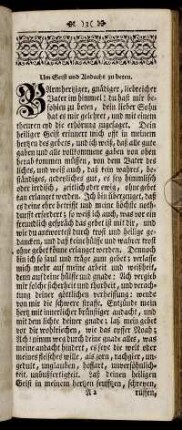 )3(
Um Geist und Andacht zu beten.
Barmhertziger, gnädiger, liebreicher
Vater im himmel! du hast mir be-
fohlen zu beten, dein lieber Sohn
hat es mir gelehret, und mit einem
theuren eyd die erhörung zugesaget. Dein
heiliger Geist erinnert mich oft in meinem
hertzen des gebets, und ich weiß, daß alle gute
gaben und alle vollkommene gaben von oben
herab kommen müssen, von dem Vater des
lichts, und weiß auch, daß kein wahres, be-
ständiges, gedeyliches gut, es sey himmlisch
oder irrdisch, zeitlich oder ewig, ohne gebet
kan erlanget werden. Ich bin überzeuget, daß
es deine ehre betrifft und meine höchste noth-
durfft erfordert; so weiß ich auch, was vor ein
freundlich gespräch das gebet ist mit dir, und
wie du antwortest durch trost und heilige ge-
dancken, und daß keine hülffe und wahrer trost
ohne gebet könne erlanget werden. Dennoch
bin ich so faul und träge zum gebet; verlasse
mich mehr auf meine arbeit und weißheit,
denn auf deine hülffe und gnade: Ach vergieb
mir solche sicherheit und thorheit, und verach-
tung deiner göttlichen verheissung: wende
von mir die schwere straffe. Entzünde mein
hertz mit innerlicher brünstiger andacht, und
mit dem lichte deiner gnade; laß mein gebet
vor dir wohlriechen, wie das opffer Noah;
Ach! nimm weg durch deine gnade alles, was
meine andacht hindert, es sey die welt oder
meines fleisches wille, als zorn, rachgier, un-
gedult, unglauben, hoffart, unversöhnlich-
keit, unbußfertigkeit. Laß deinen heiligen
Geist in meinem hertzen seuffzen, schreyen,
A 2 ruffen,